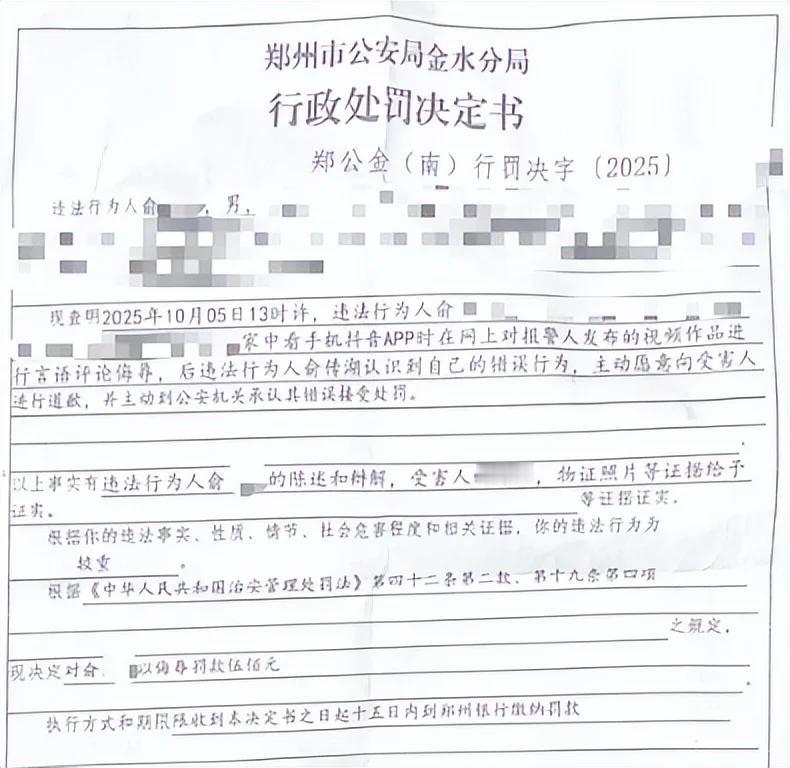 郑州市公安局金水分局
行政处罚决定书
郑公金（南）行罚决字〔2025〕
违法行为人俞，男，
现查明2025年10月05日13时许，违法行为人俞
家中看手机抖音APP时在网上对报警人发布的视频作品进
行言语评论侮辱，后违法行为人俞传湖认识到自己的错误行为，主动愿意向受害人
进行道歉，并主动到公安机关承认其错误接受处罚。
以上事实有违法行为人俞的陈述和辩解，受害人，物证照片等证据给予
证实。等证据证实。
根据你的违法事实、性质、情节、社会危害程度和相关证据，你的违法行为为
较重。
根据《中华人民共和国治安管理处罚法》第四十二条第二款、第十九条第四项
之规定，
现决定对俞以侮辱罚款伍佰元
执行方式和期限限收到本决定书之日起十五日内到郑州银行缴纳罚款